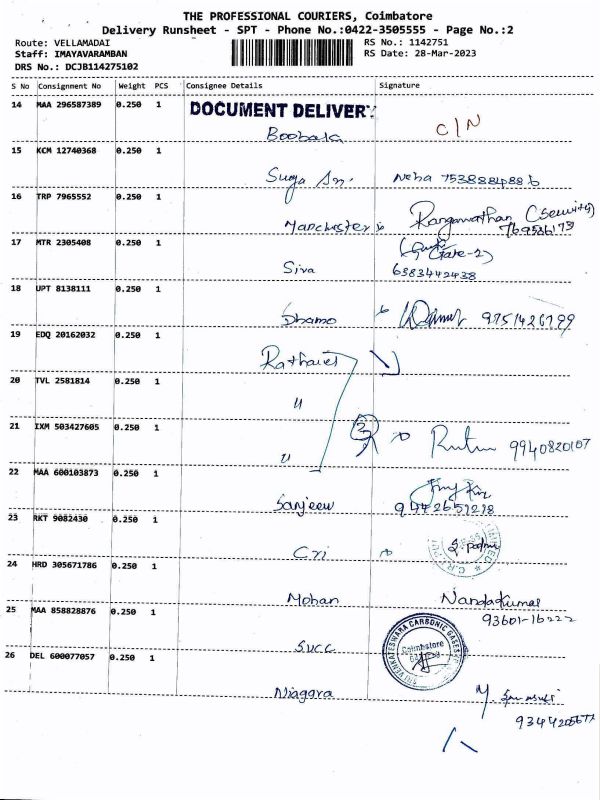 THE PROFESSIONAL COURIERS, Coimbatore
Delivery Runsheet - SPT - Phone No.:0422-3505555 - Page No.:2
Route: VELLAMADAI RS No.: 1142751
Staff: IMAYAVARAMBAN RS Date: 28-Mar-2023
DRS No.: DCJB114275102
S No Consignment No Weight PCS Consignee Details Signature
14 MAA 296587389 0.250 1 DOCUMENT DELIVERY
Boobala C/N
15 KCM 12740368 0.250 1
Suga Neha 7538884886
16 TRP 7965552 0.250 1
Manchester Ranganathan (Security)
17 MTR 2305408 0.250 1
Siva 6383442438
18 UPT 8138111 0.250 1
Dhamo 9751426799
19 EDQ 20162032 0.250 1
20 TVL 2581814 0.250 1
"
21 IXM 503427605 0.250 1
" 9940820107
22 MAA 600103873 0.250 1
Sanjeev 9442659218
23 RKT 9082430 0.250 1
Cri
24 HRD 305671786 0.250 1
Mohan Nandakumar
93601-16222
25 MAA 858828876 0.250 1
SVCC SRI VENKATESWARA CARBONIC GASES Coimbatore
26 DEL 600077057 0.250 1
Niagara